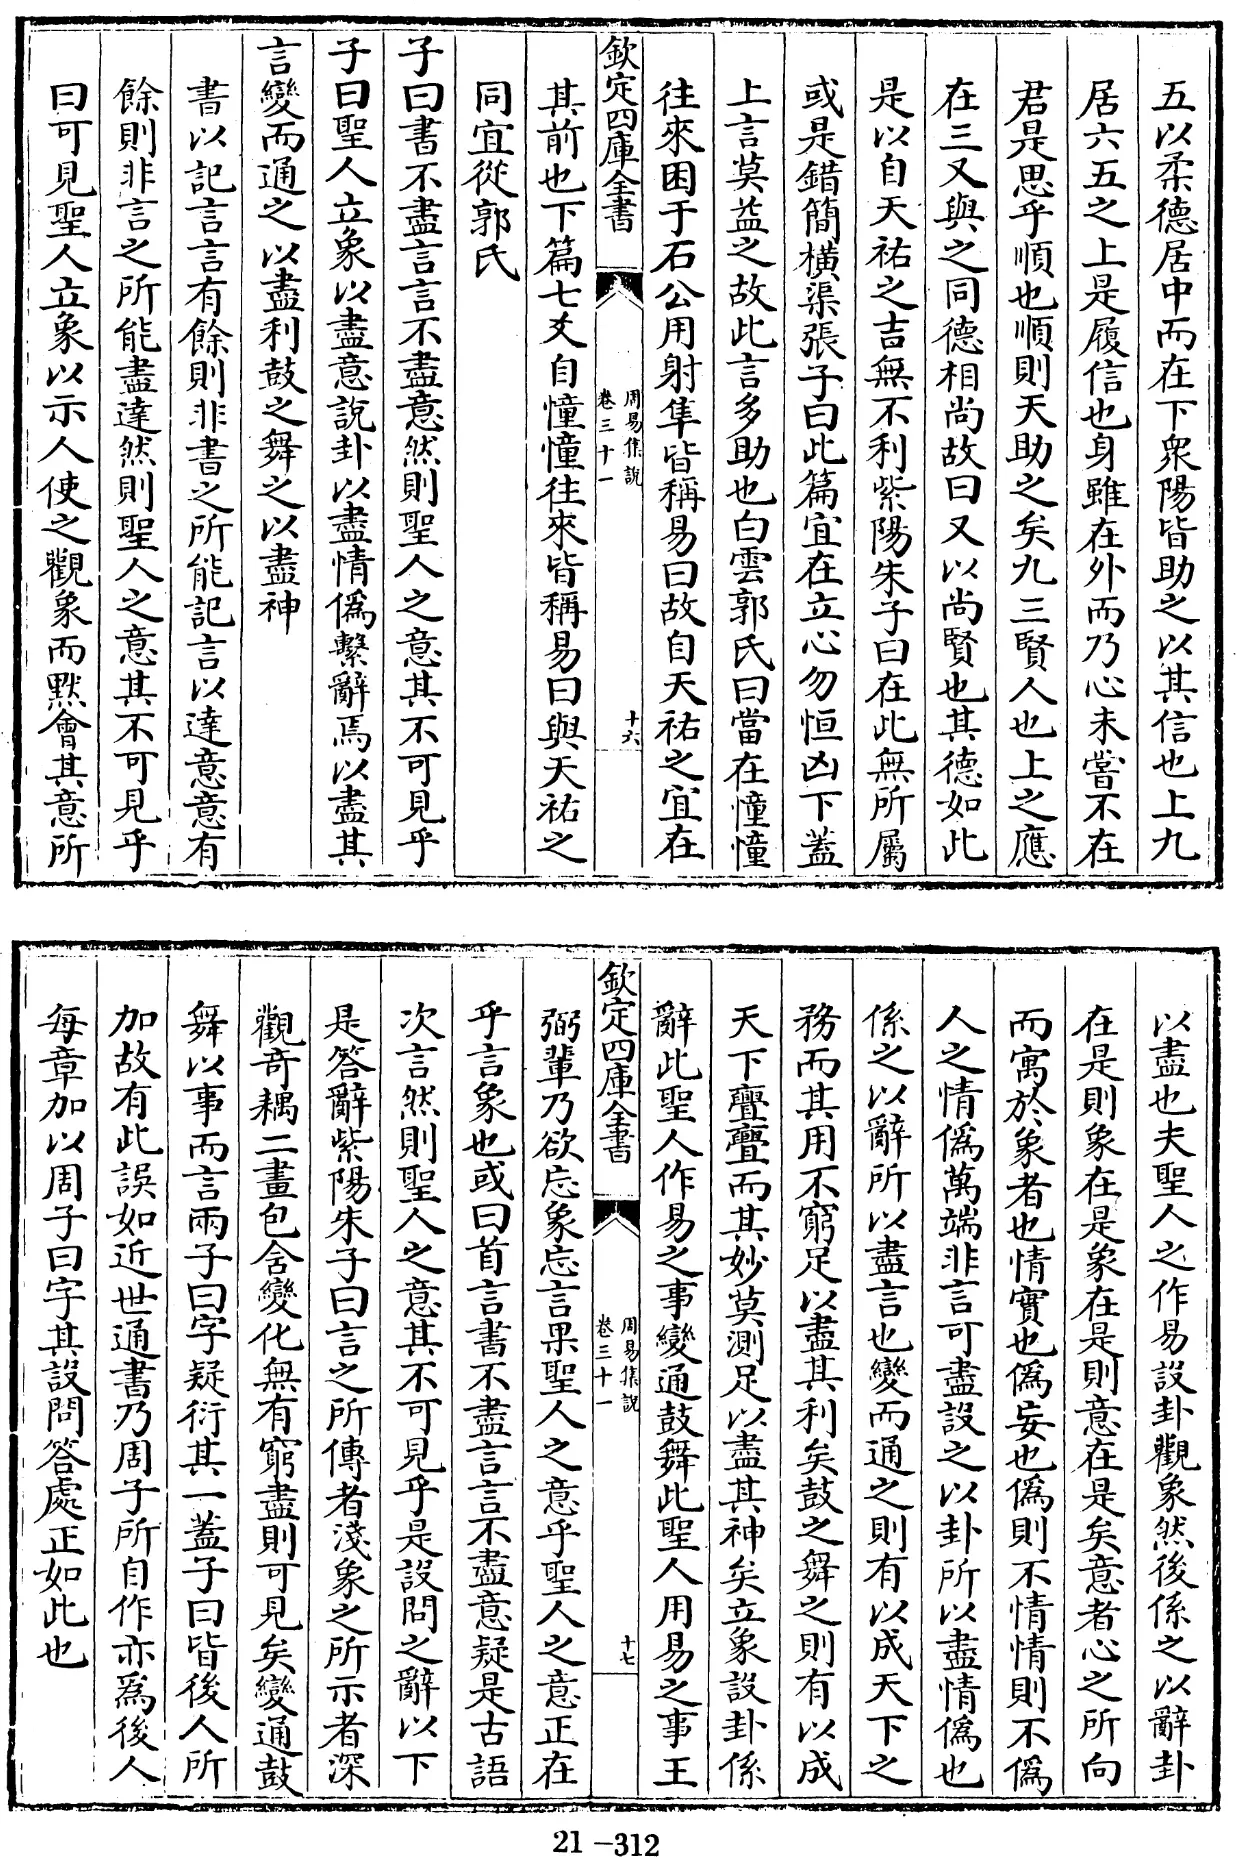 五以柔德居中而在下衆陽皆助之以其信也上九
居六五之上是履信也身雖在外而乃心未嘗不在
君是思乎順也順則天助之矣九三賢人也上之應
在三又與之同德相尚故曰又以尚賢也其德如此
是以自天祐之吉無不利紫陽朱子曰在此無所屬
或是錯簡橫渠張子曰此篇宜在立心勿恒凶下蓋
上言莫益之故此言多助也白雲郭氏曰當在憧憧
往來困于石公用射隼皆稱易曰故自天祐之宜在
欽定四庫全書
周易集說
卷三十一
十六
其前也下篇七爻自憧憧往來皆稱易曰與天祐之
同宜從郭氏
子曰書不盡言言不盡意然則聖人之意其不可見乎
子曰聖人立象以盡意說卦以盡情偽繫辭焉以盡其
言變而通之以盡利鼓之舞之以盡神
書以記言言有餘則非書之所能記言以達意意有
餘則非言之所能盡達然則聖人之意其不可見乎
曰可見聖人立象以示人使之觀象而默會其意所
以盡也夫聖人之作易設卦觀象然後係之以辭卦
在是則象在是象在是則意在是矣意者心之所向
而寓於象者也情實也偽妄也偽則不情情則不偽
人之情偽萬端非言可盡設之以卦所以盡情偽也
係之以辭所以盡言也變而通之則有以成天下之
務而其用不窮足以盡其利矣鼓之舞之則有以成
天下亹亹而其妙莫測足以盡其神矣立象設卦係
辭此聖人作易之事變通鼓舞此聖人用易之事王
欽定四庫全書
周易集說
卷三十一
十七
弼輩乃欲忘象忘言果聖人之意乎聖人之意正在
乎言象也或曰首言書不盡言言不盡意疑是古語
次言然則聖人之意其不可見乎是設問之辭以下
是答辭紫陽朱子曰言之所傳者淺象之所示者深
觀奇耦二畫包含變化無有窮盡則可見矣變通鼓
舞以事而言兩子曰字疑衍其一蓋子曰皆後人所
加故有此誤如近世通書乃周子所自作亦為後人
每章加以周子曰字其設問答處正如此也
21-312